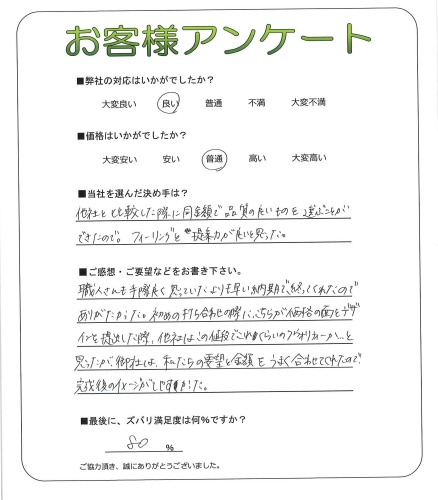 お客様アンケート
■弊社の対応はいかがでしたか？
大変良い 良い 普通 不満 大変不満
■価格はいかがでしたか？
大変安い 安い 普通 高い 大変高い
■当社を選んだ決め手は？
他社と比較した際に同金額で品質の良いものを選ぶことが
できたので。フィーリングと提案力が良いと思った。
■ご感想・ご要望などをお書き下さい。
職人さんも手際良く思っていたより早い納期で終ってくれたので
ありがたかった。初めの打ち合わせの際に、こちらが価格の面とデザ
インを提出した際、他社はこの値段でこれくらいの
思ったが、御社は、私たちの要望と金額をうまく合わせてくれたので
完成後のイメージがしやすかった。
■最後に、ズバリ満足度は何％ですか？
80 %
ご協力頂き、誠にありがとうございました。